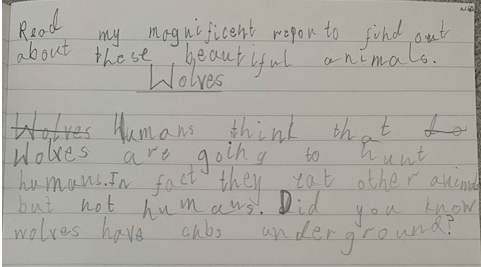 Read my magnificent report to find out
about these beautiful animals.
Wolves
Wolves Humans think that
Wolves are going to hunt
humans. In fact they eat other anim
but not humans. Did you know
wolves have cubs underground?